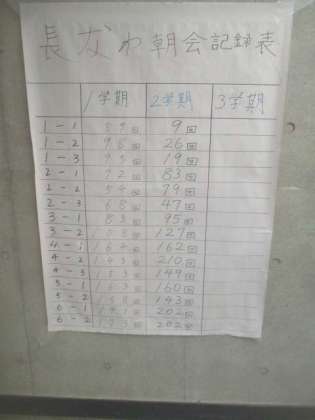 長なわ朝会記録表
1学期 2学期 3学期
1-1 59回 9回
1-2 回 26回
1-3 回 19回
2-1 72回 83回
2-2 54回 79回
2-3 68回 47回
3-1 83回 95回
3-2 回 127回
4-1 164回 162回
4-2 143回 210回
4-3 153回 149回
5-1 163回 160回
5-2 158回 143回
6-1 回 202回
6-2 回 202回